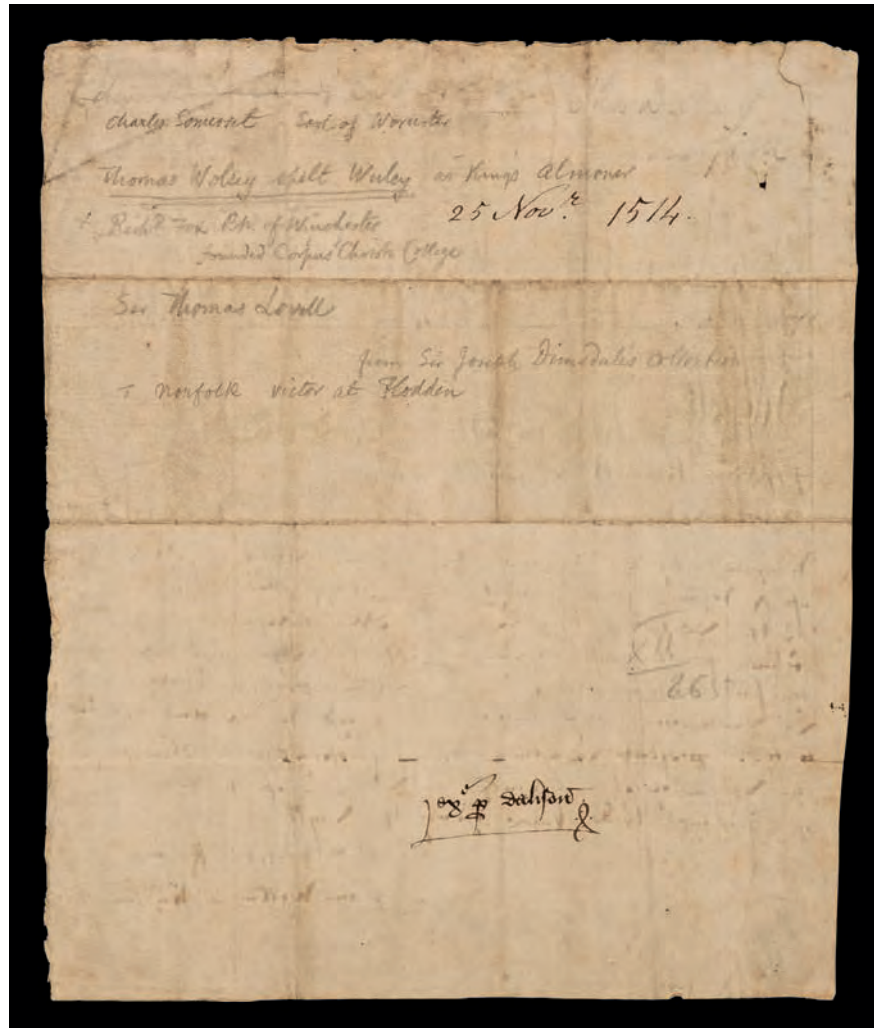 Charles Somerset Earl of Worcester
Thomas Wolsey spelt Wulcy as Kings Almoner
25 Novr. 1514.
+ Richd Fox Bp. of Winchester
founded Corpus Christi College
Sir Thomas Lovell
from Sir Joseph Dimsdale's Collection
T Norfolk victor at Flodden
XII